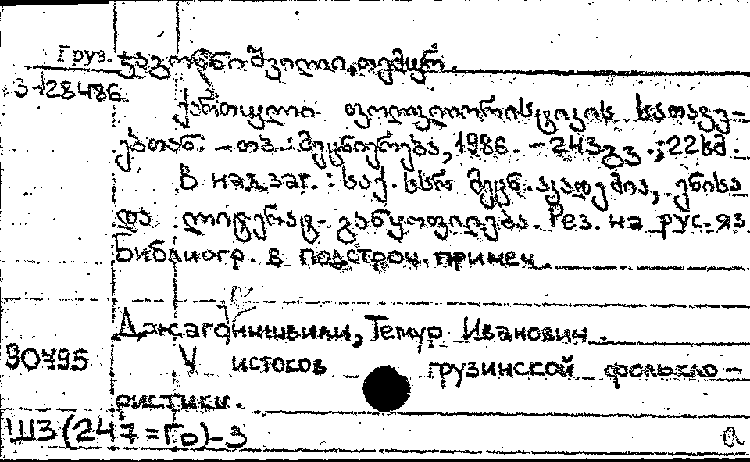 Груз. ჯაგოდნიშვილი, თემურ.
3-28486
ქართული ფოლკლორისტიკის სათავე-
ებთან. - თბ.: მეცნიერება, 1986. - 243 გვ.; 22 სმ.
В надзаг.: საქ. სსრ მეცნ. აკადემია, ენისა
და ლიტერატ. განყოფილება. Рез. на рус. яз.
Библиогр. в подстроч. примеч.
Джагоднишвили, Темур Иванович.
90495 У истоков грузинской фолькло-
ристики.
Ш3(247=Го)-3